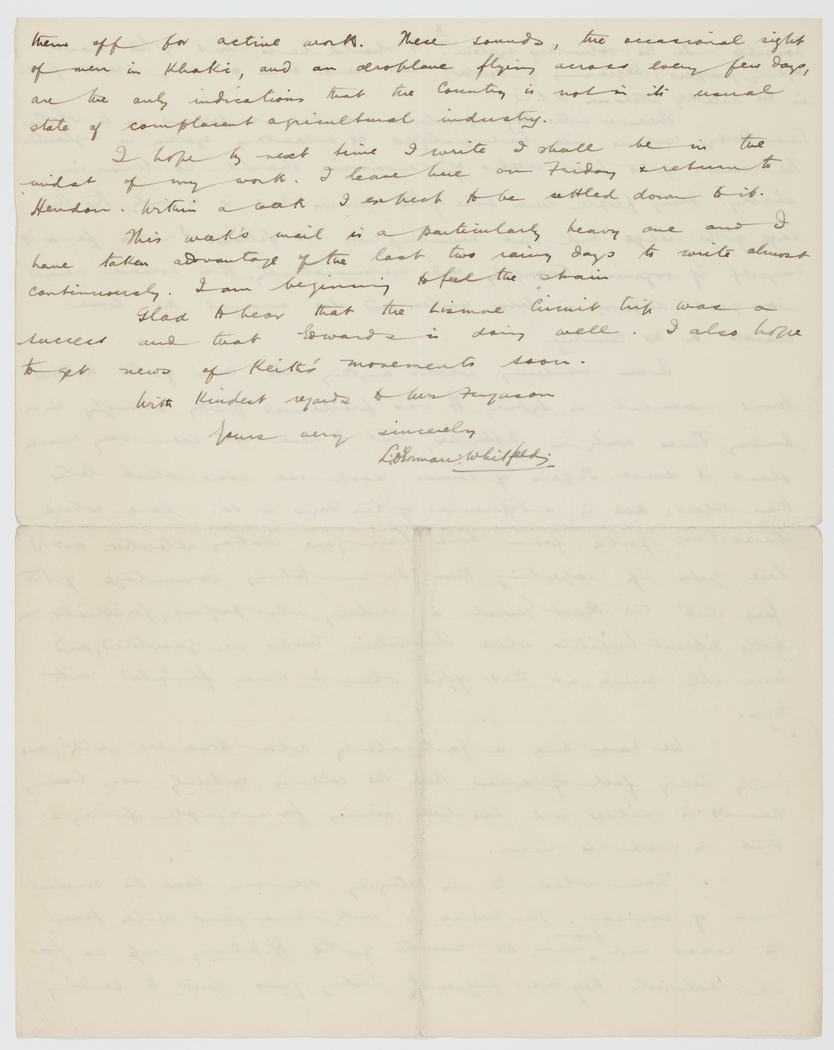 them off for active work. These sounds, the occasional sight
of men in Khaki, and an aeroplane flying across every few days,
are the only indications that the Country is not in its usual
state of complacent agricultural industry.
I hope by next time I write I shall be in the
midst of my work. I leave here on Friday & return to
Hendon. Within a week I expect to be settled down to it.
This week's mail is a particularly heavy one and I
have taken advantage of the last two rainy days to write almost
continuously. I am beginning to feel the strain
Glad to hear that the Lismore Circuit trip was a
success and that Edwards is doing well. I also hope
to get news of Keith's movements soon.
With Kindest regards to Mrs Ferguson
Yours very sincerely
Whitfeld